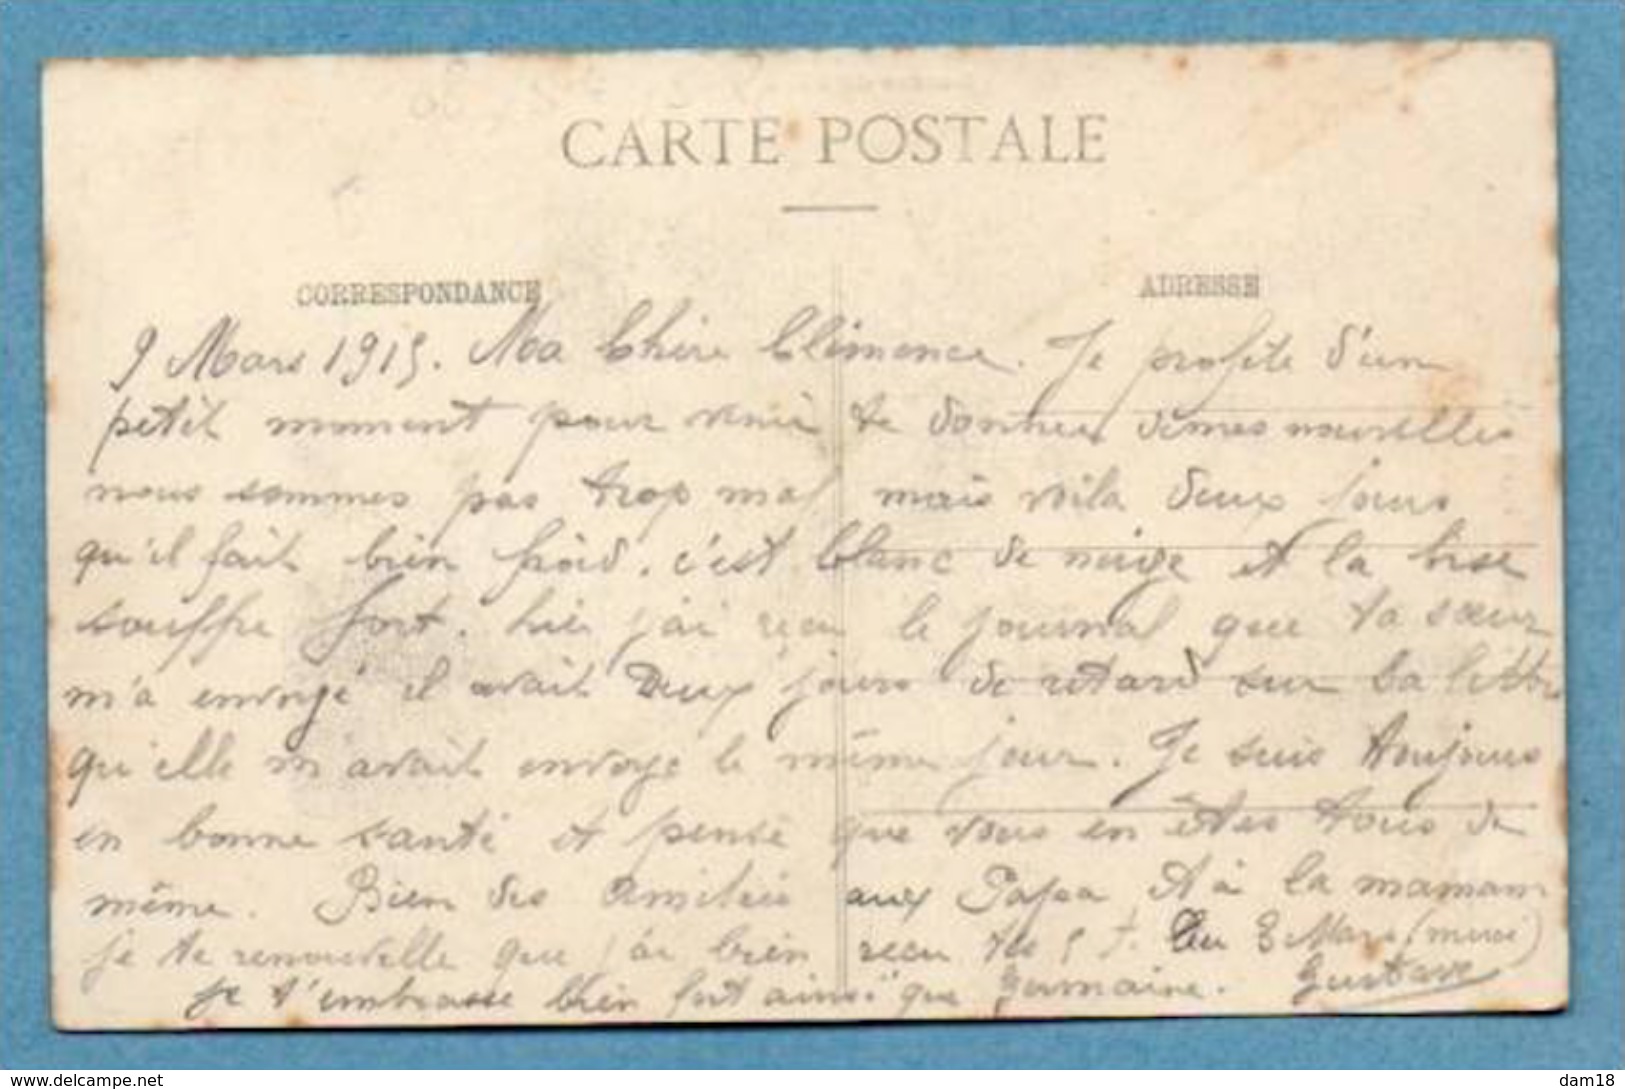 CARTE POSTALE
CORRESPONDANCE
ADRESSE
9 Mars 1915. Ma Chère Clémence. Je profite d'un
petit moment pour venir te donner de mes nouvelles
nous sommes pas trop mal mais voila deux jours
qu'il fait bien froid. c'est blanc de neige et la bise
souffre fort. hier j'ai reçu le journal que ta sœur
m'a envoyé il avait Deux jours de retard sur la lettre
qu'elle m'avait envoyé le même jour. Je suis toujours
en bonne santé et pense que vous en êtes tous de
même. Bien des amitiés aux Papa et à la maman
je te renouvelle que j'ai bien reçu tes 5 f. Le 8 Mars. (merci)
je t'embrasse bien fort ainsi que Germaine. Gustave
delcampe.net
dam18